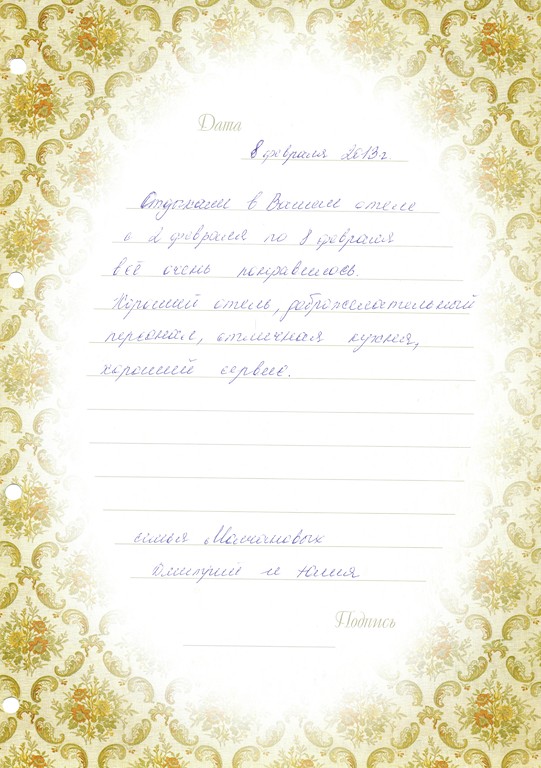 Дата
8 февраля 2013 г.
Отдыхали в Вашем отеле
с 2 февраля по 8 февраля
всё очень понравилось.
Хороший отель, доброжелательный
персонал, отличная кухня,
хороший сервис.
семья Молчановых
Дмитрий и Юлия
Подпись